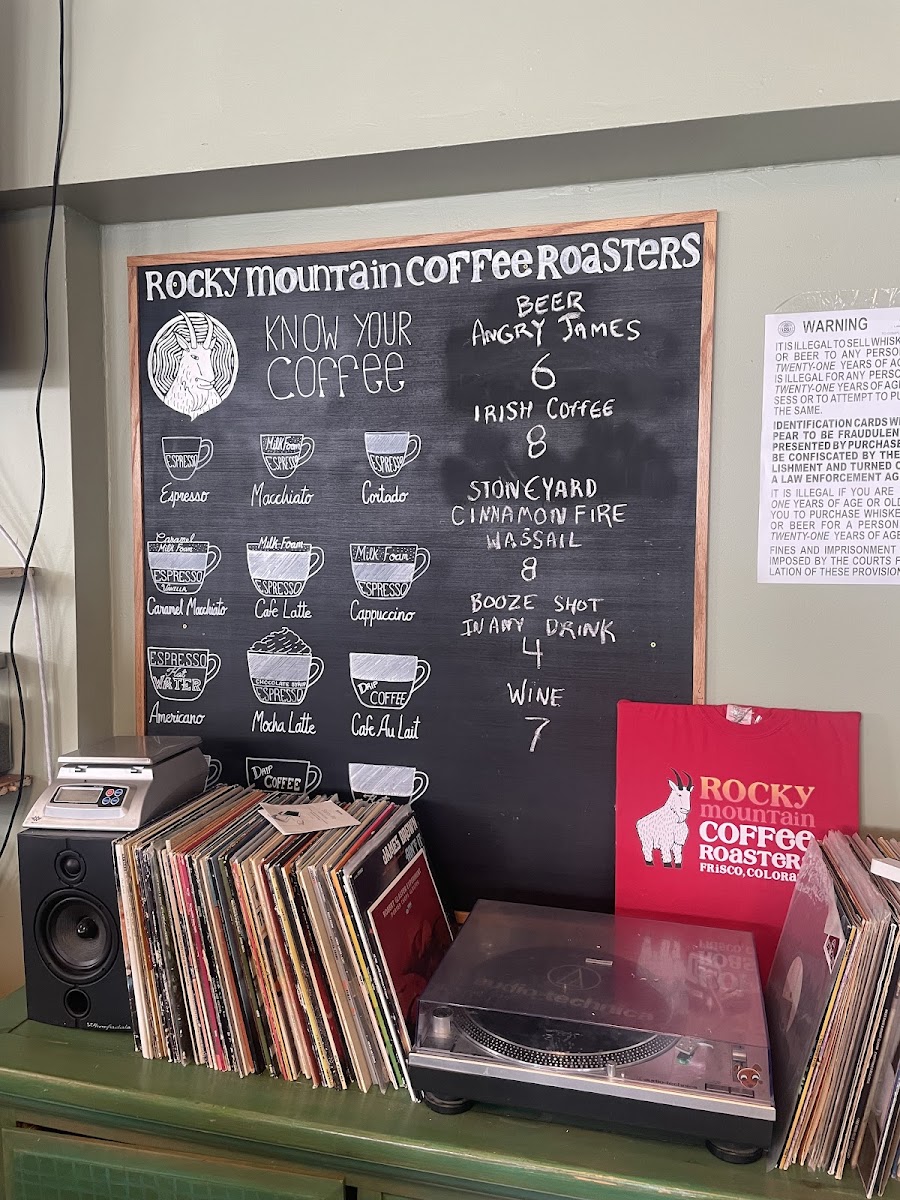 ROCKY mOUNTAIN COFFee ROASTERS
KNOW YOUR
COFFee
BEER
ANGRY JAMES
6
IRISH COFFEE
8
STONEYARD
CINNAMON FIRE
WASSAIL
8
BOOZE SHOT
IN ANY DRINK
4
WINE
7
ESPRESSO
Espresso
Milk Foam
ESPRESSO
Macchiato
ESPRESSO
Cortado
Caramel
Milk Foam
ESPRESSO
Vanilla
Caramel Macchiato
Milk Foam
ESPRESSO
Cafe Latte
Milk Foam
ESPRESSO
Cappuccino
ESPRESSO
Hot
WATER
Americano
CHOCOLATE SYRUP
ESPRESSO
Mocha Latte
DRIP
COFFEE
Cafe Au Lait
DRIP
COFFEE
WARNING
IT IS ILLEGAL TO SELL WHISK
OR BEER TO ANY PERSO
TWENTY-ONE YEARS OF AG
IS ILLEGAL FOR ANY PERSO
TWENTY-ONE YEARS OF AGE
SESS OR TO ATTEMPT TO PU
THE SAME.
IDENTIFICATION CARDS WH
PEAR TO BE FRAUDULEN
PRESENTED BY PURCHASE
BE CONFISCATED BY THE
LISHMENT AND TURNED O
A LAW ENFORCEMENT AG
IT IS ILLEGAL IF YOU ARE
ONE YEARS OF AGE OR OLD
YOU TO PURCHASE WHISKE
OR BEER FOR A PERSON
TWENTY-ONE YEARS OF AGE
FINES AND IMPRISONMENT
IMPOSED BY THE COURTS F
LATION OF THESE PROVISION
ROCKY
mOUNTAIN
COFFEE
ROASTERS
FRISCO, COLORA
JAMES BROWN
audio-technica
Wharfedale